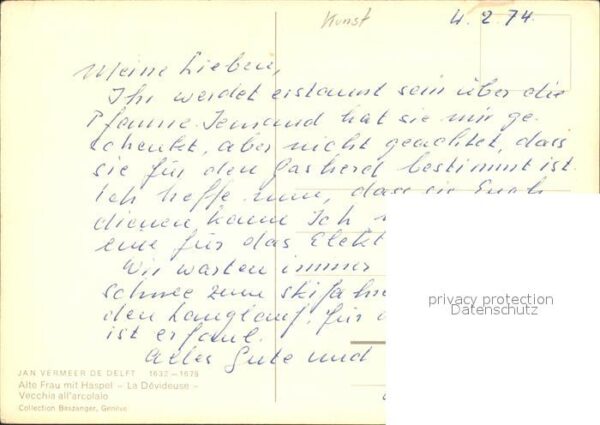 Kunst
4.2.74.
Meine Lieben,
Ihr werdet erstaunt sein über die
Pfanne. Jemand hat sie mir ge-
schenkt, aber nicht geachtet, dass
sie für den Gasherd bestimmt ist.
Ich hoffe nun, dass sie Euch
dienen kann. Ich
eine für das Elekt
Wir warten immer
schnee zum skifahre
den Langlauf. Für
ist er faul.
Alles Gute und
privacy protection
Datenschutz
JAN VERMEER DE DELFT 1632–1675
Alte Frau mit Haspel – La Dévideuse –
Vecchia all'arcolaio
Collection Beszanger, Genève